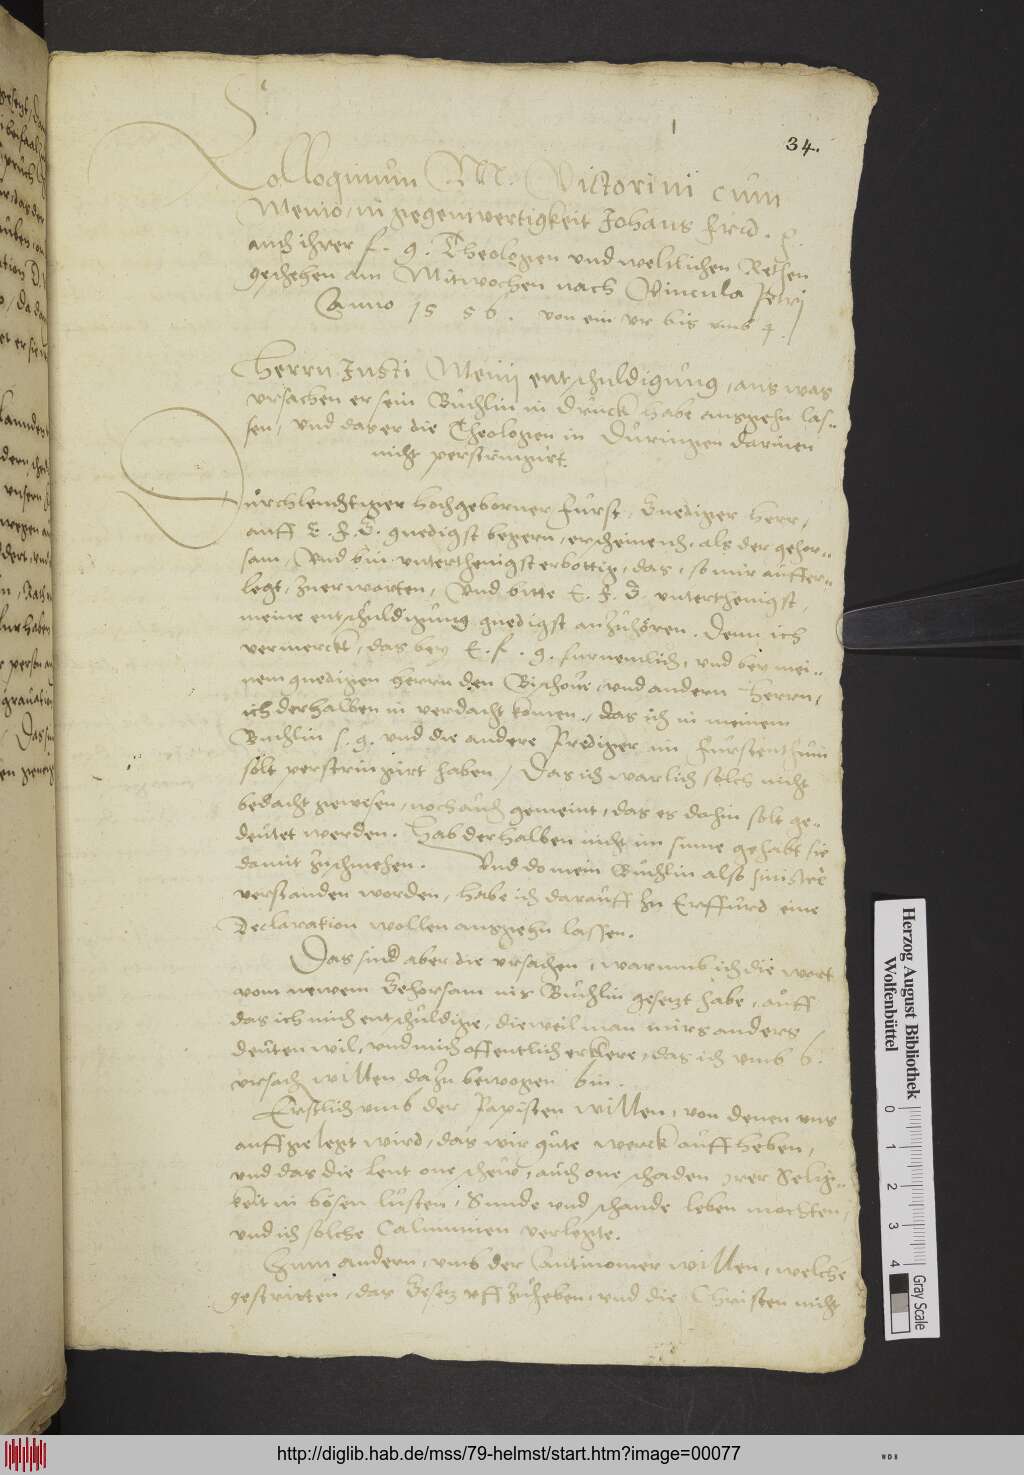 34.
Colloquium M. Victorini cum
Menio, in gegenwertigkeit Johans Frid. 
auch ihrer f. g. Theologen und weltlichen Rethen
geschehen am Mitwochen nach Vincula Petrj
Anno 1556. von ein vr bis vmb 4.
Herrn Justi Menij entschuldigung, aus was
vrsachen er sein Buchlin in druck habe ausgehn las-
sen, und das er die Theologen in Duringen darinen
nicht perstringirt.
Durchleuchtiger Hochgeborner Furst, Gnediger Herr,
auff E. F. G. gnedigst begern, erscheine ich, als der gehor-
sam, Vnd bin unterthenigst erbottig, das, so mir auffer-
legt, zuerwarten, Vnd bitte E. F. G. unterthenigst,
meine entschuldigung gnedigst anzuhören. Denn ich
vermerckt, das bey E. f. g. furnemlich, und bey mei-
nem gnedigen herrn den Bischove, und andern Herrn,
ich derhalben in verdacht komen, das ich in meinem
Buchlin s. g. und die andere Prediger im furstenthum
solt perstringirt haben, Das ich warlich solch nicht
bedacht gewesen, noch auch gemeint, das es dahin solt ge-
deutet werden. Hab derhalben nicht im sinne gehabt sie
damit zuschmehen. Und do mein Buchlin also sinistre
verstanden worden, habe ich darauff zu Erffurd eine
Declaration wollen ausgehn lassen.
Das sind aber die vrsachen, warumb ich die wort
vom newem Gehorsam ins Buchlin gesetzt habe, auff
das ich mich entschuldige, dieweil man mirs anders
deuten wil, und mich offentlich erklere, das ich vmb 6.
vrsach willen dazu bewogen bin.
Erstlich vmb der Papisten willen, von denen vns
auffgelegt wird, das wir gute werck auffheben,
und das die leut one schew, auch one schaden irer Selig-
keit in bösen lusten, Sunde und schande leben mochten,
und ich solche Calumnien verlegte.
Zum andern, vmb der Antinomer willen, welche
gestritten, das Gesetz uffzuheben, und die Christen nicht
Herzog August Bibliothek
Wolfenbüttel
0 1 2 3 4
Gray Scale
http://diglib.hab.de/mss/79-helmst/start.htm?image=00077
WDB